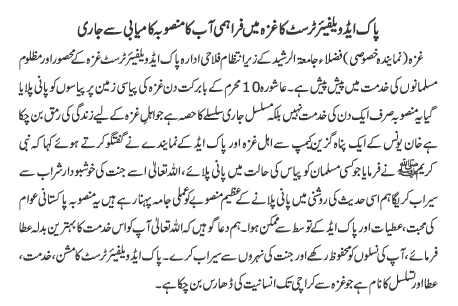 پاک ایڈ ویلفیئر ٹرسٹ کا غزہ میں فراہمی آب کا منصوبہ کامیابی سے جاری
غزہ (نمایندہ خصوصی) فضلاء جامعۃ الرشید کے زیر انتظام فلاحی ادارہ پاک ایڈ ویلفیئر ٹرسٹ غزہ کے محصور اور مظلوم
مسلمانوں کی خدمت میں پیش پیش ہے۔ عاشورہ 10 محرم کے بابرکت دن غزہ کی پیاسی زمین پر پیاسوں کو پانی پلایا
گیا یہ منصوبہ صرف ایک دن کی خدمت نہیں بلکہ مسلسل جاری سلسلے کا حصہ ہے جو اہل غزہ کے لیے زندگی کی رمق بن چکا
ہے خان یونس کے ایک پناہ گزین کیمپ سے اہل غزہ اور پاک ایڈ کے نمایندے نے گفتگو کرتے ہوئے کہا کہ نبی
کریم ﷺ نے فرمایا جو کسی مسلمان کو پیاس کی حالت میں پانی پلائے، اللہ تعالیٰ اسے جنت کی خوشبودار شراب سے
سیراب کریگا ہم اسی حدیث کی روشنی میں پانی پلانے کے عظیم منصوبے کو عملی جامہ پہنا رہے ہیں یہ منصوبہ پاکستانی عوام
کی محبت، عطیات اور پاک ایڈ کے توسط سے ممکن ہوا۔ ہم دعا گو ہیں کہ اللہ تعالیٰ آپ کو اس خدمت کا بہترین بدلہ عطا
فرمائے، آپ کی نسلوں کو محفوظ رکھے اور جنت کی نہروں سے سیراب کرے۔ پاک ایڈ ویلفیئر ٹرسٹ کا مشن، خدمت،
عطا اور تسلسل کا نام ہے جو غزہ سے کراچی تک انسانیت کی ڈھارس بن چکا ہے۔